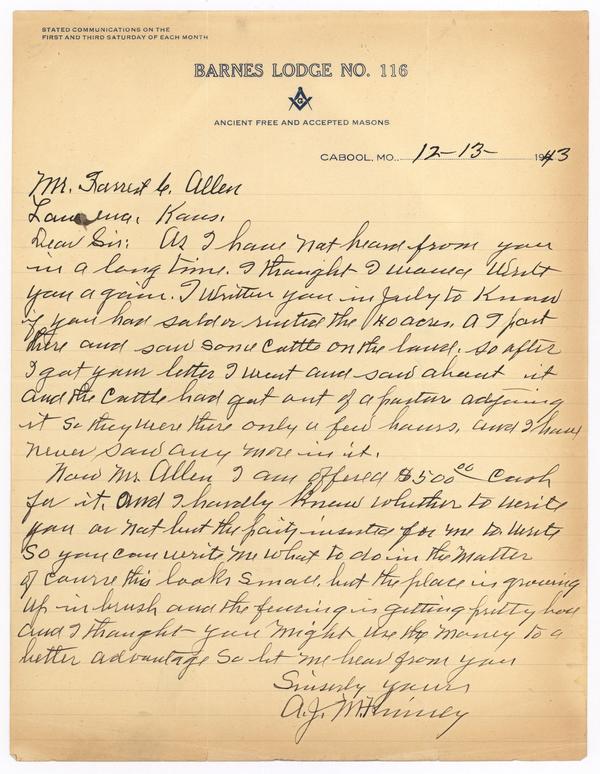 STATED COMMUNICATIONS ON THE
FIRST AND THIRD SATURDAY OF EACH MONTH
BARNES LODGE NO. 116
G
ANCIENT FREE AND ACCEPTED MASONS
CABOOL, MO., 12-13- 1943
Mr. Forrest C. Allen
Kans.
Dear Sir: As I have not heard from you
in a long time. I thought I would write
you again. I written you in July to know
if you had sold or rented the 40 acres. as I past
there and saw some cattle on the land. so after
I got your letter I went and saw about it
and the cattle had got out of a pasture adjoining
it so they were there only a few hours. and I have
never saw any more in it.
Now Mr. Allen I am offered $500.00 cash
for it. and I hardly know whether to write
you or not but the party insisted for me to write
So you can write me what to do in the matter
of course this looks small. but the place is growing
up in brush and the fencing is getting pretty bad
and I thought you might use the money to a
better advantage So let me hear from you
Sinserly yours
A.J. McKinney